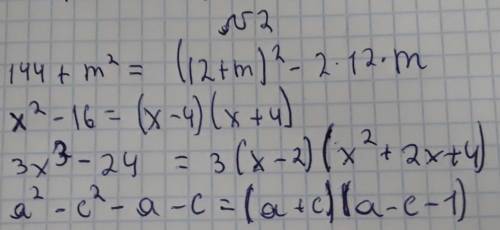 №2
144 + m² = (12+m)² - 2·12·m
x² - 16 = (x-4)(x+4)
3x³ - 24 = 3(x-2)(x²+2x+4)
a² - c² - a - c = (a+c)(a-c-1)